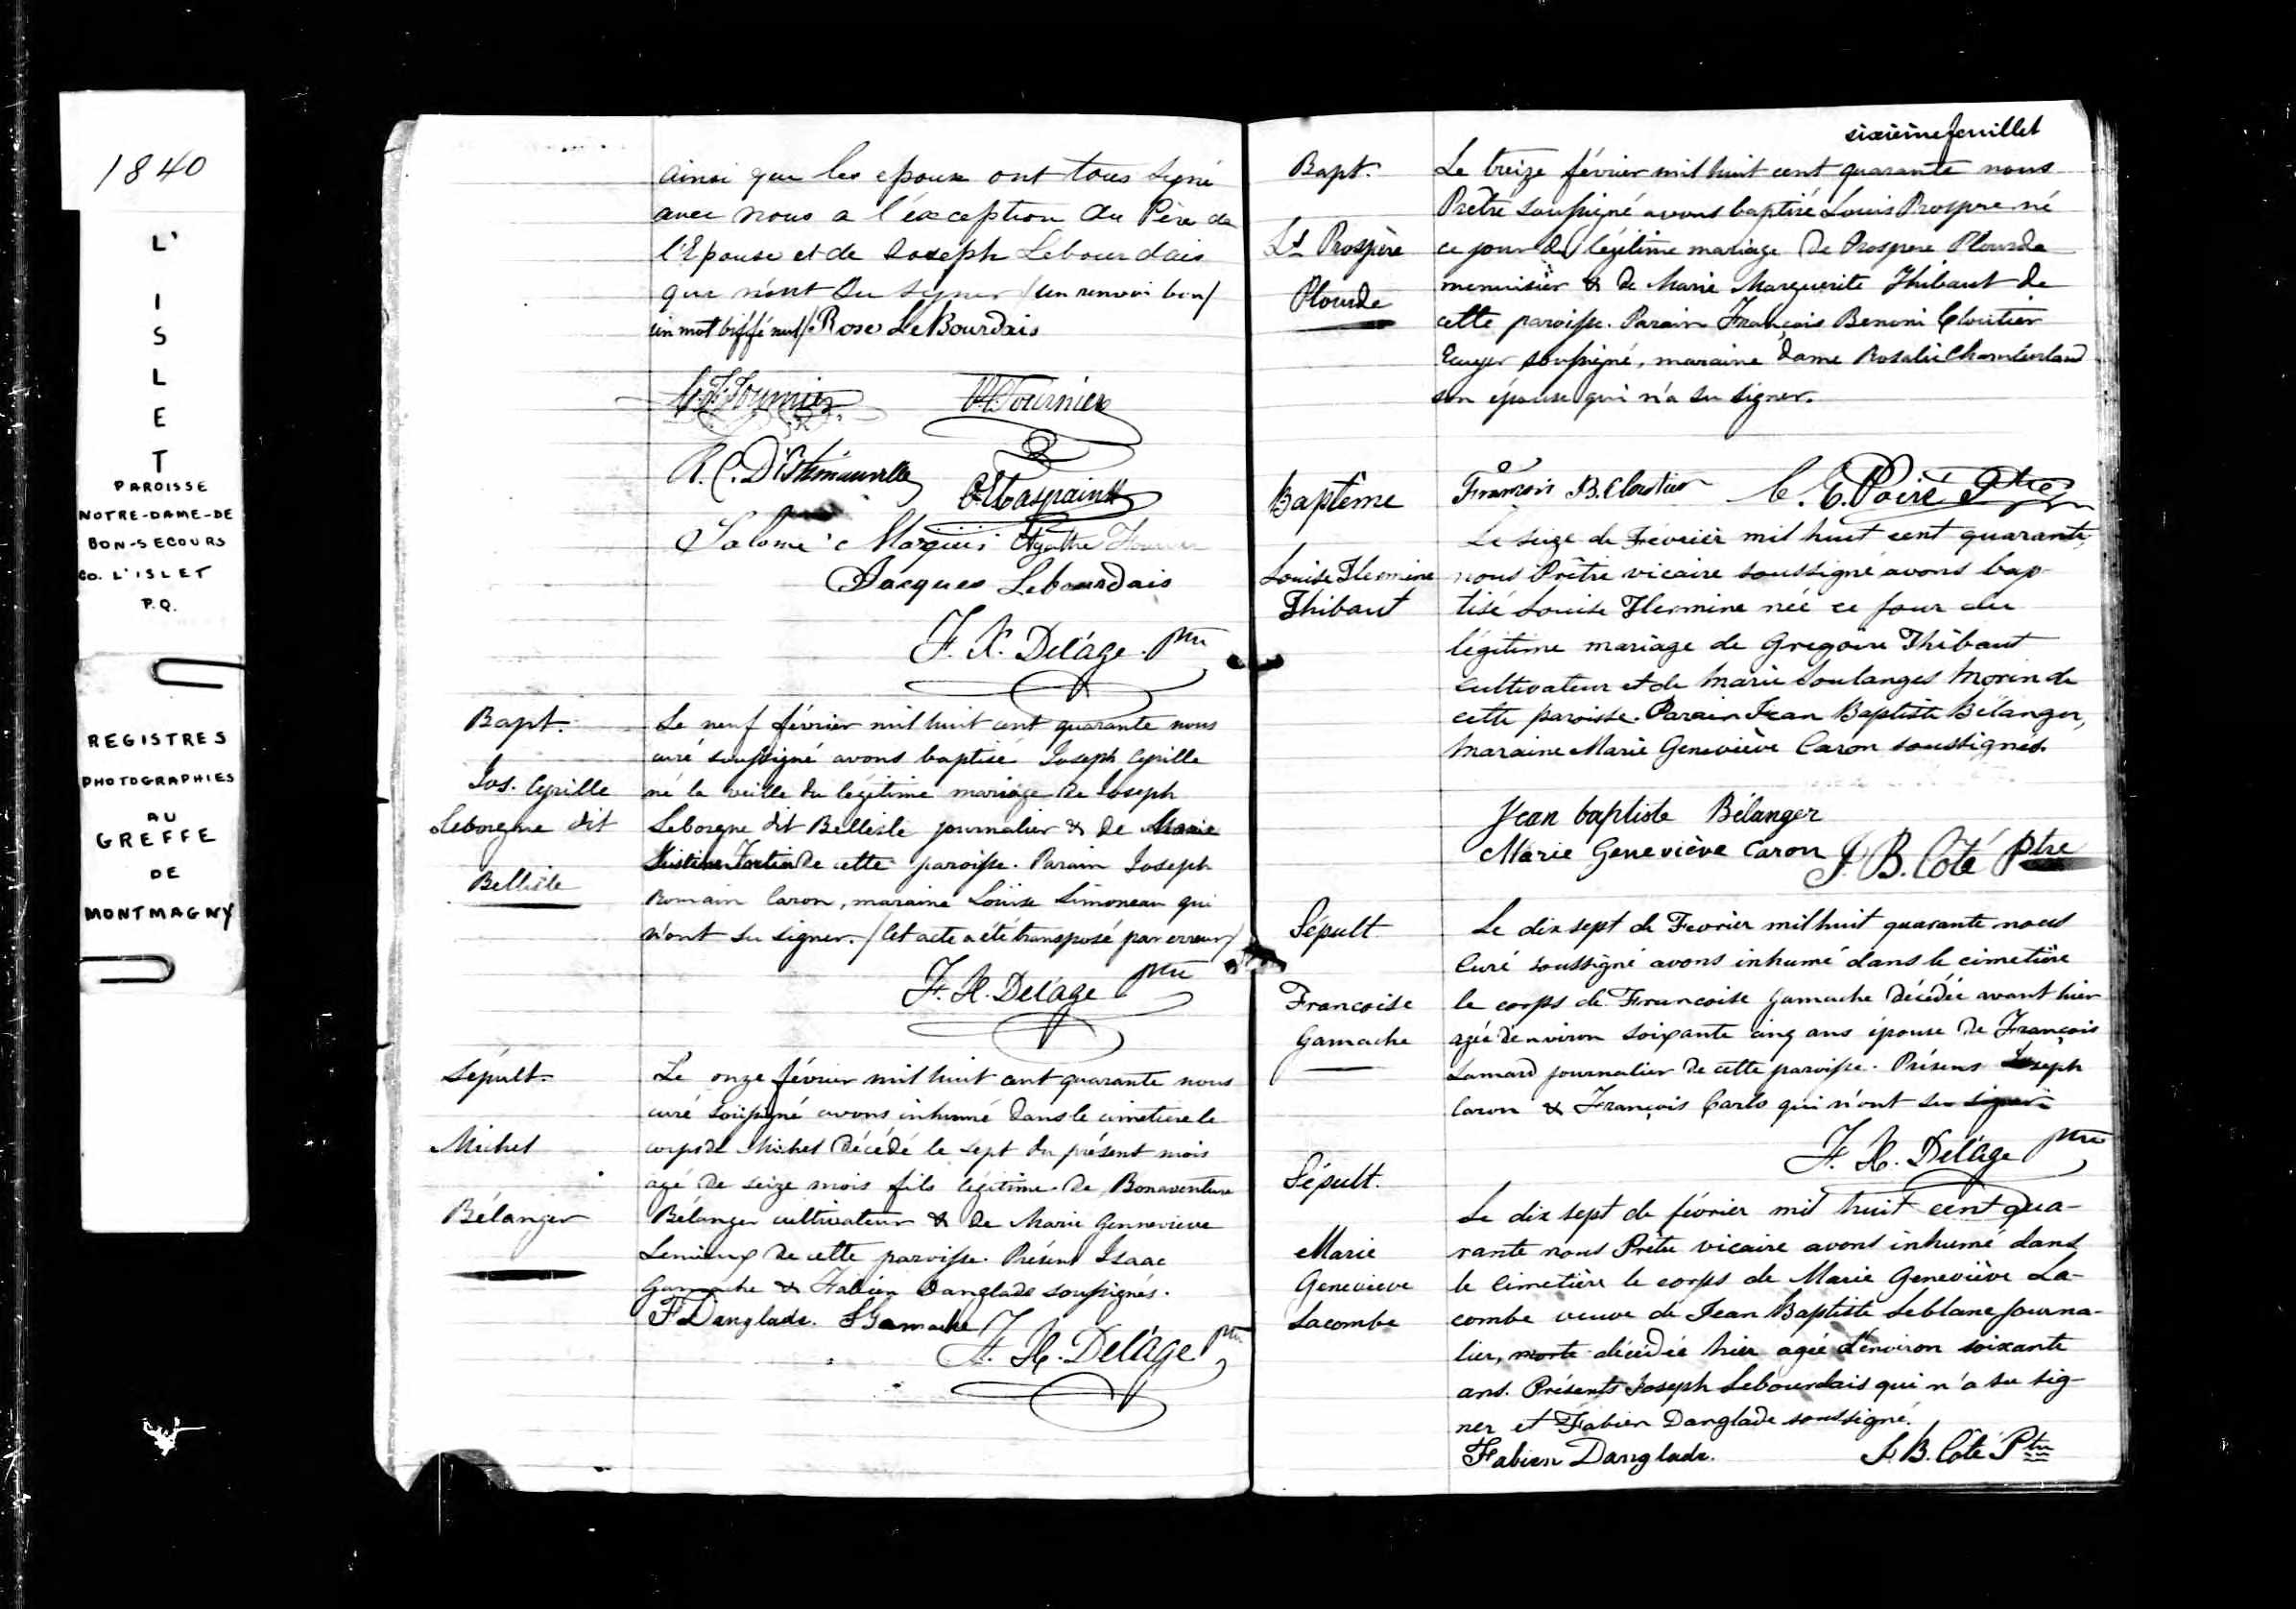 1840
L'
I
S
L
E
T
PAROISSE
NOTRE-DAME-DE
BON-SECOURS
CO. L'ISLET
P.Q.
REGISTRES
PHOTOGRAPHIES
AU
GREFFE
DE
MONTMAGNY
ainsi que les epoux ont tous signé
avec nous a l'éxception du Père de
l'Epouse et de Joseph Lebourdais
qui n'ont su signer / un renvoi bon /
un mot biffé nul / Rose LeBourdais
Fournier
Fournier
R. C. D'Estimauville
Salomé Marquis Agathe
Jacques Lebourdais
F. X. Delâge ptre
Bapt.
Jos. Cyrille
Leborgne dit
Bellisle
Le neuf février mil huit cent quarante nous
curé soussigné avons baptisé Joseph Cyrille
né la veille du légitime mariage de Joseph
Leborgne dit Bellisle journalier & de Marie
Justine Fortin de cette paroisse. Parain Joseph
Romain Caron, maraine Louise Simoneau qui
n'ont su signer. / Cet acte a été transposé par erreur /
F. X. Delâge ptre
Sépult.
Michel
Bélanger
Le onze février mil huit cent quarante nous
curé soussigné avons inhumé dans le cimetiere le
corps de Michel décédé le sept du présent mois
agé de seize mois fils légitime de Bonaventure
Bélanger cultivateur & de Marie Gennevieve
Lemieux de cette paroisse. Présens Isaac
Gamache & Fabien Danglade soussignés.
F Danglade. I Gamache
F. X. Delâge ptre
sixième feuillet
Bapt.
Ls Prospère
Plourde
Le treize février mil huit cent quarante nous
Prêtre soussigné avons baptisé Louis Prospere né
ce jour du légitime mariage de Prospere Plourde
menuisier & de Marie Marguerite Thibaut de
cette paroisse. Parain François Benoni Cloutier
Ecuyer soussigné, maraine Dame Rosalie Chamberland
son épouse qui n'a su signer.
François B. Cloutier C. E. Poiré Ptre
Baptême
Louise Hermine
Thibaut
Le seize de Février mil huit cent quarante,
nous Prêtre vicaire soussigné avons bap-
tisé Louise Hermine née ce jour du
légitime mariage de Gregoire Thibaut
cultivateur et de Marie Soulanges Morin de
cette paroisse. Parain Jean Baptiste Bélanger,
Maraine Marie Geneviève Caron soussignés.
Jean baptiste Bélanger
Marie Geneviève Caron J. B. Côté Ptre
Sépult
Francoise
Gamache
Le dix sept de Fevrier mil huit quarante nous
Curé soussigné avons inhumé dans le cimetière
le corps de Francoise Gamache décédée avant hier
agée d'environ soixante cinq ans épouse de François
Lamard journalier de cette paroisse. Présens Joseph
Caron & François Carlo qui n'ont su signer
F. X. Delâge ptre
Sépult.
Marie
Genevieve
Lacombe
Le dix sept de février mil huit cent qua-
rante nous Prêtre vicaire avons inhumé dans
le cimetière le corps de Marie Geneviève La-
combe veuve de Jean Baptiste Leblanc journa-
lier, morte décédée hier agée d'environ soixante
ans. Présents Joseph Lebourdais qui n'a su sig-
ner et Fabien Danglade soussigné.
Fabien Danglade. J. B. Côté Ptre